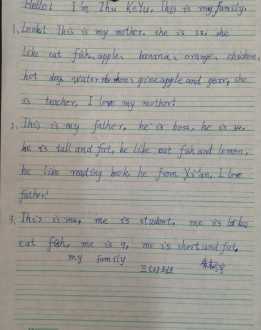 Hello! I'm Zhu KeYu, This is my family.
1, Look! This is my mother. she is 38, she
like eat fish, apple, banana, orange, chicken,
hot dog, watermelon, pineapple and pear, she
is teacher, I love my mother!
2, This is my father, he is boss, he is
he is tall and fat, he like eat fish and lemon,
he like reading book, he from Xi'an, I love
father!
3, This is me, me is student, me is like
eat fish, me is 9, me is short and fat,
my family